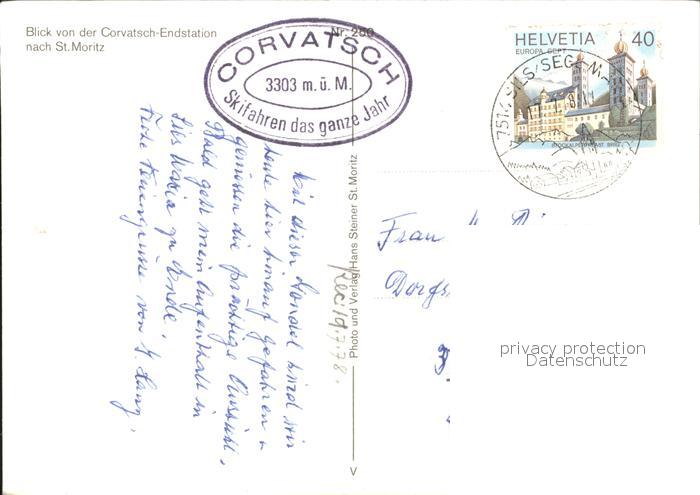 Blick von der Corvatsch-Endstation
nach St.Moritz
Nr. 280
CORVATSCH
3303 m.ü.M.
Skifahren das ganze Jahr
HELVETIA 40
EUROPA CEPT
STOCKALPERPALAST BRIG
7514 SILS/SEGL
Mit dieser Gondel sind wir
heute hier hinauf gefahren u
geniessen die prächtige Aussicht.
Bald geht mein Aufenthalt in
Sils Maria zu Ende.
Frohe Feriengrüsse von
Rec. 19.7.78.
Photo und Verlag Hans Steiner St.Moritz
V
Frau
privacy protection
Datenschutz